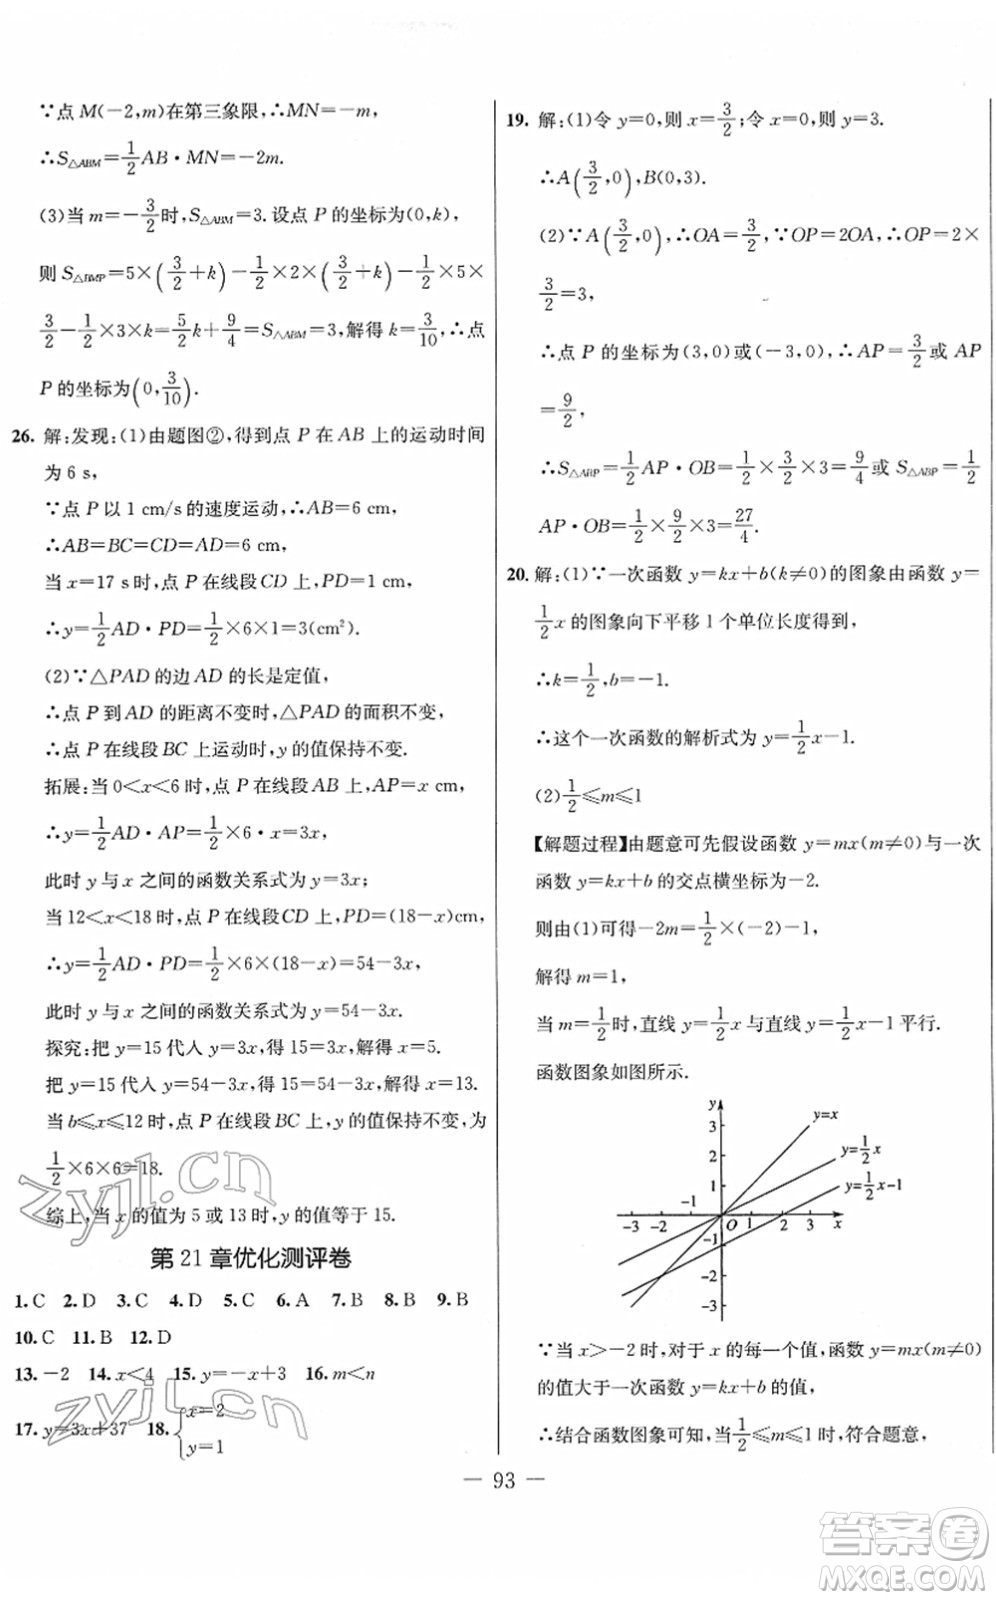 ∵点 M(-2,m)在第三象限,∴MN=-m.
∴S△ABM=1/2AB·MN=-2m.
(3)当 m=-3/2时,S△ABM=3.设点 P 的坐标为(0,k),
则 S△BMP=5×(3/2+k)-1/2×2×(3/2+k)-1/2×5×
3/2-1/2×3×k=5/2k+9/4=S△ABM=3,解得 k=3/10,∴点
P 的坐标为(0,3/10).
26. 解:发现:(1)由题图②,得到点 P 在 AB 上的运动时间
为 6 s,
∵点 P 以 1 cm/s 的速度运动,∴AB=6 cm,
∴AB=BC=CD=AD=6 cm,
当 x=17 s时,点 P 在线段 CD 上,PD=1 cm,
∴y=1/2AD·PD=1/2×6×1=3(cm²).
(2)∵△PAD 的边 AD 的长是定值,
∴点 P 到 AD 的距离不变时,△PAD 的面积不变,
∴点 P 在线段 BC 上运动时,y 的值保持不变.
拓展:当 0<x<6 时,点 P 在线段 AB 上,AP=x cm,
∴y=1/2AD·AP=1/2×6·x=3x,
此时 y 与 x 之间的函数关系式为 y=3x;
当 12<x<18 时,点 P 在线段CD 上,PD=(18-x)cm,
∴y=1/2AD·PD=1/2×6×(18-x)=54-3x,
此时 y 与 x 之间的函数关系式为 y=54-3x.
探究:把 y=15 代入 y=3x,得 15=3x,解得 x=5.
把 y=15 代入 y=54-3x,得 15=54-3x,解得 x=13.
当 b≤x≤12 时,点 P 在线段 BC 上,y 的值保持不变,为
1/2×6×6=18.
综上,当 x 的值为 5 或 13 时,y 的值等于 15.
第 21 章优化测评卷
1. C 2. D 3. C 4. D 5. C 6. A 7. B 8. B 9. B
10. C 11. B 12. D
13. -2 14. x<4 15. y=-x+3 16. m<n
17. y=3x+37 18. {x=2
y=1
19. 解:(1)令 y=0,则 x=3/2;令 x=0,则 y=3.
∴A(3/2,0),B(0,3).
(2)∵A(3/2,0),∴OA=3/2,∵OP=2OA,∴OP=2×
3/2=3,
∴点 P 的坐标为(3,0)或(-3,0),∴AP=3/2或 AP
=9/2,
∴S△ABP=1/2AP·OB=1/2×3/2×3=9/4或 S△ABP=1/2
AP·OB=1/2×9/2×3=27/4.
20. 解:(1)∵一次函数 y=kx+b(k≠0)的图象由函数 y=
1/2x 的图象向下平移 1 个单位长度得到,
∴k=1/2,b=-1.
∴这个一次函数的解析式为 y=1/2x-1.
(2)1/2≤m≤1
【解题过程】由题意可先假设函数 y=mx(m≠0)与一次
函数 y=kx+b 的交点横坐标为-2.
则由(1)可得-2m=1/2×(-2)-1,
解得 m=1.
当 m=1/2时,直线 y=1/2x 与直线 y=1/2x-1 平行.
函数图象如图所示.
y
3
2
1
-1
-3 -2 O 1 2 3 x
-1
-2
-3
y=x
y=1/2x
y=1/2x-1
∵当 x>-2 时,对于 x 的每一个值,函数 y=mx(m≠0)
的值大于一次函数 y=kx+b 的值,
∴结合函数图象可知,当1/2≤m≤1 时,符合题意,
— 93 —
zyjl.cn
zyjl.cn
答案圈
MXQE.COM